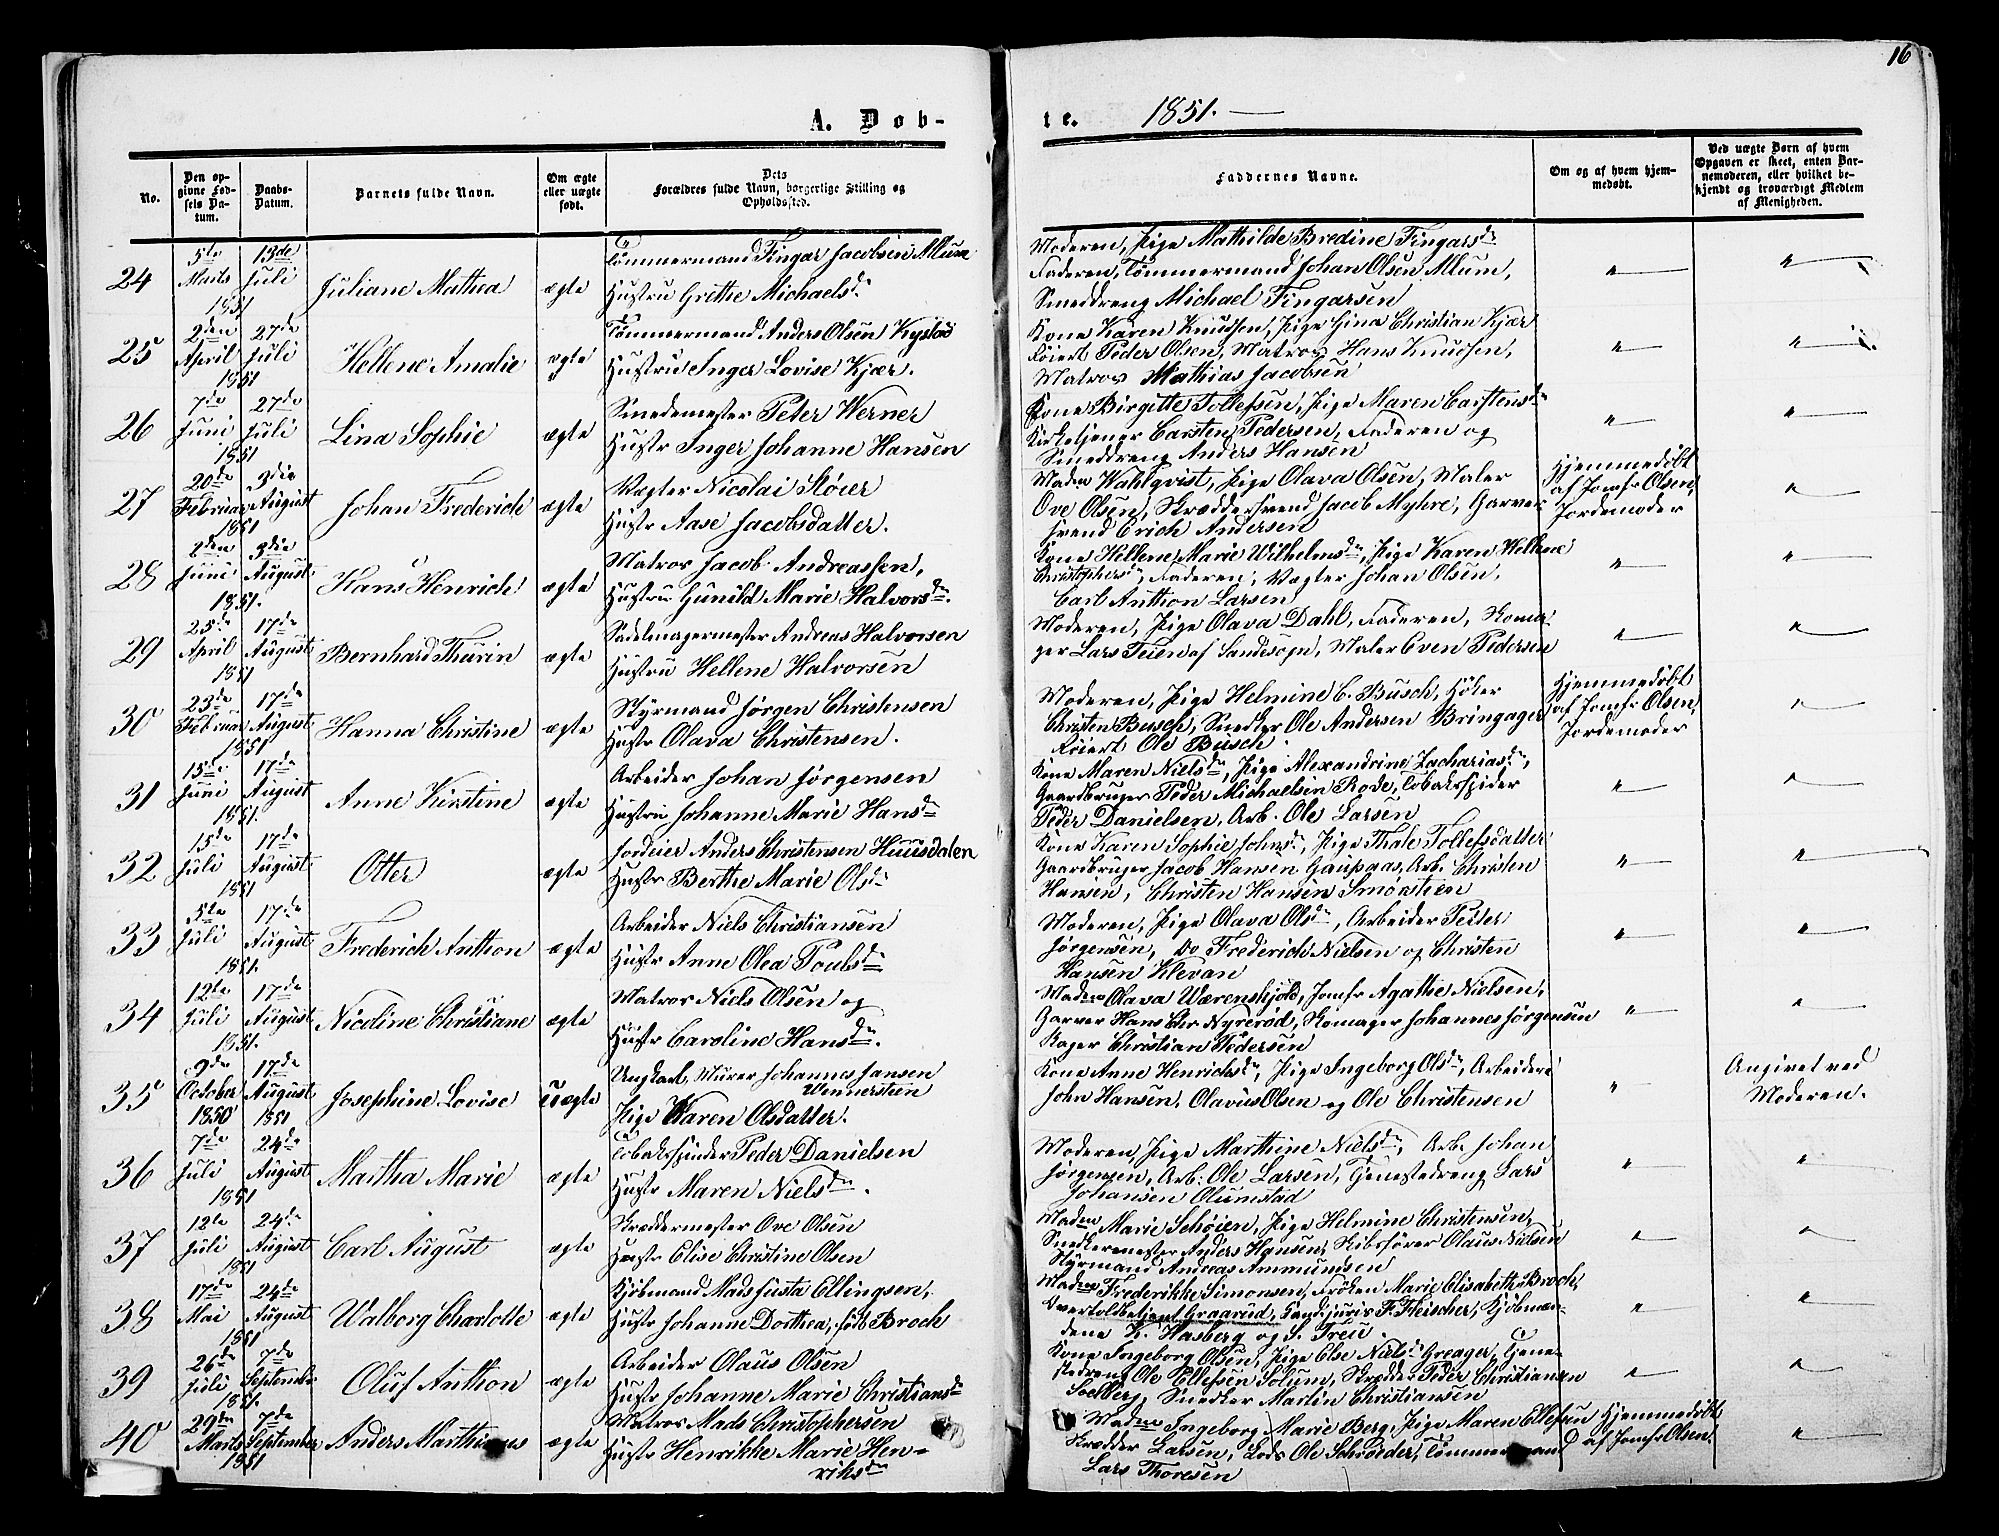 16
A. Døb-
te. 1851.
No.
Den op-
givne Fød-
sels Da-
tum.
Daabs-
Datum.
Barnets fulde Navn.
Om ægte
eller uægte
født.
Dets
Forældres fulde Navn, borgerlige Stilling og
Opholdssted.
Faddernes Navne.
Om og af hvem hjem-
medøbt.
Ved uægte Børn af hvem
Opgaven er skeet, enten Bar-
nemoderen, eller hvilket be-
kjendt og troværdigt Medlem
af Menigheden.
24
5te
Marts
1851
13de
Juli
Juliane Mathea
ægte
Tømmermand Fingar Jacobsen Allum
Hustru Grethe Michaelsdr
Moderen, Pige Mathilde Bredine Fingarsdr
Faderen, Tømmermand Johan Olsen Allum,
Smeddreng Michael Fingarsen
"
"
25
2den
April
1851
27de
Juli
Hellene Amalie
ægte
Tømmermand Anders Olsen Kystad
Hustru Inger Lovise Kjær.
Kone Karen Knudsen, Pige Gina Christian Kjær
Føiert Peder Olsen, Matros Hans Knudsen,
Matros Mathias Jacobsen
"
"
26
7de
Juni
1851
27de
Juli
Lina Sophie
ægte
Smedemester Peter Werner
Hustr Inger Johanne Hansen
Kone Birgitte Tollefsen, Pige Maren Carstensdr
Kirketjener Carsten Pedersen, Faderen og
Smeddreng Anders Hansen
"
"
27
20de
Februar
1851
3die
August
Johan Frederich
ægte
Vægter Nicolai Støier
Hustr Aase Jacobsdatter.
Madm Wahlqvist, Pige Olava Olsen, Maler
Ove Olsen, Skræddersvend Jacob Myhre, Garver
svend Erich Andersen
Hjemmedøbt
af Jomfr Olsen,
Jordemoder
"
28
2den
Juni
1851.
3die
August
Hans Henrich
ægte
Matros Jacob Andreassen,
Hustru Gunild Marie Halvorsdr.
Kone Hellene Marie Wilhelmsdr, Pige Karen Hellene
Christophersdr, Faderen, Vægter Johan Olsen,
Carl Anthon Larsen
"
"
29
25de
April
1851
17de
August
Bernhard Thurin
ægte
Sadelmagermester Andreas Halvorsen
Hustru Hellene Halvorsen
Moderen, Pige Olava Dahl, Faderen, Skoma-
ger Lars Teien af Sandesogn, Maler Even Pedersen
"
"
30
23de
Februar
1851
17de
August
Hanna Christine
ægte
Styrmand Jørgen Christensen
Hustr Olava Christensen.
Moderen, Pige Helmine C. Busch, Høker
Christen Busch, Snedker Ole Andersen Bringager
Føiert Ole Busch
Hjemmedøbt
af Jomfr Olsen,
Jordemoder
"
31
15de
Juni
1851.
17de
August
Anne Kirstine
ægte
Arbeider Johan Jørgensen
Hustru Johanne Marie Hansdr
Kone Maren Nielsdr, Pige Alexandrine Zachariasdr,
Gaardbruger Peder Michaelsen Rove, Tobakspinder
Peder Danielsen, Arb. Ole Larsen
"
"
32
15de
Juli
1851
17de
August
Otter
ægte
Jordeier Anders Christensen Huusdalen
Hustr Berthe Marie Olsdr
Kone Karen Sophie Johnsdr, Pige Thale Tollefsdatter
Gaardbruger Jacob Hansen Gaupaas, Arb. Christen
Hansen, Christen Hansen Smørstien
"
"
33
5te
Juli
1851.
17de
August
Frederich Anthon
ægte
Arbeider Niels Christiansen
Hustr Anne Olea Poulsdr
Moderen, Pige Olava Olsdr, Arbeider Peter
Jørgensen, Do Frederich Nielsen og Christen
Hansen Klevan
"
"
34
12te
Juli
1851.
17de
August
Nicoline Christiane
ægte
Matros Niels Olsen og
Hustr Caroline Hansdr.
Madm Olava Wærenskjold, Jomfr Agathe Nielsen,
Garver Hans Chr Nyrerød, Skomager Johannes Jørgensen
Bager Christian Pedersen
"
"
35
9de
October
1850
17de
August
1851
Josephine Lovise
Uægte
Ungkarl, Murer Johannes Jansen
Wennersteen
Pige Karen Olsdatter.
Kone Anne Henrichsdr, Pige Ingeborg Olsdr, Arbeidere
John Hansen, Olavius Olsen og Ole Christensen
"
Angivet ved
Moderen.
36
7de
Juli
1851
24de
August
Martha Marie
ægte
Tobakspinder Peder Danielsen
Hustr Maren Nielsdr.
Moderen, Pige Marthine Nielsdr, Arb. Johan
Jørgensen, Arb: Ole Larsen, Tjenestedreng Lars
Johansen Olumstad
"
"
37
12te
Juli
1851
24de
August
Carl August
ægte
Skræddermester Ove Olsen
Hustr Elise Christine Olsen
Madm Marie Schøien, Pige Helmine Christensen,
Snedkermester Anders Hansen, Skibsfører Olaus Nielsen
Styrmand Andreas Ammundsen
"
"
38
17de
Mai
1851
24de
August
Walborg Charlotte
ægte
Kjøbmand Mads Justa Ellingsen,
Hustr Johanne Dorthea, født Broch
Madm Frederikke Simonsen, Frøken Marie Elisabeth Broch,
Overtoldbetjent Graarud, Cand: juris F. Fleischer, Kjøbmæn-
dene K. Hasberg og S. Treu.
"
"
39
26de
Juli
1851.
7de
September
Oluf Anthon
ægte
Arbeider Olaus Olsen
Hustr Johanne Marie Christiansdr
Kone Ingeborg Olsen, Pige Else Nielsdr Greager, Tjene-
stedreng Ole Ellefsen Solum, Skrædder Peder Christiansen
Solberg, Snedker Martin Christiansen
"
"
40
29de
Marts
1851
7de
September
Anders Marthinus
ægte
Matros Mads Christophersen
Hustr Henrikke Marie Hen-
riksdr
Madm Ingeborg Marie Berg, Pige Maren Ellefsen
Skrædder Larsen, Lods Ole Schrøder, Tømmermand
Lars Thoresen
Hjemmedøbt
af Jomfr Olsen.
"